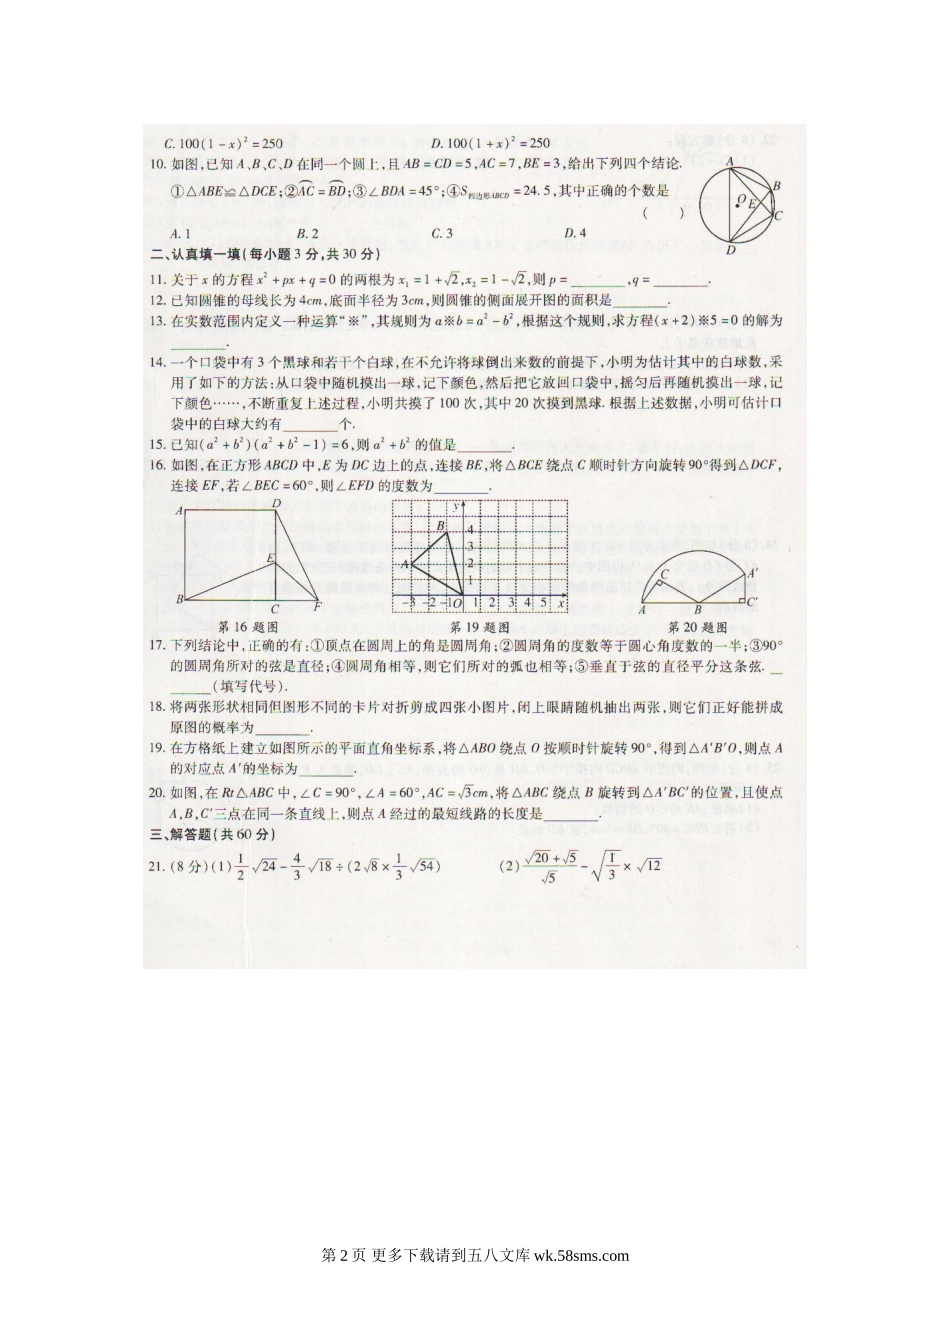 C. 100(1-x)²=250 D. 100(1+x)²=250
10. 如图,已知A、B、C、D在同一个圆上,且AB=CD=5,AC=7,BE=3,给出下列四个结论.
①△ABE≌△DCE;②AC=BD;③∠BDA=45°;④S四边形ABCD=24.5,其中正确的个数是
( )
A. 1 B. 2 C. 3 D. 4
A
B
O
E
C
D
二、认真填一填(每小题3分,共30分)
11. 关于x的方程x²+px+q=0的两根为x₁=1+√2,x₂=1-√2,则p=______,q=______.
12. 已知圆锥的母线长为4cm,底面半径为3cm,则圆锥的侧面展开图的面积是______.
13. 在实数范围内定义一种运算“※”,其规则为a※b=a²-b²,根据这个规则,求方程(x+2)※5=0的解为
______.
14. 一个口袋中有3个黑球和若干个白球,在不允许将球倒出来数的前提下,小明为估计其中的白球数,采
用了如下的方法:从口袋中随机摸出一球,记下颜色,然后把它放回口袋中,摇匀后再随机摸出一球,记
下颜色……,不断重复上述过程,小明共摸了100次,其中20次摸到黑球.根据上述数据,小明可估计口
袋中的白球大约有______个.
15. 已知(a²+b²)(a²+b²-1)=6,则a²+b²的值是______.
16. 如图,在正方形ABCD中,E为DC边上的点,连接BE,将△BCE绕点C顺时针方向旋转90°得到△DCF,
连接EF,若∠BEC=60°,则∠EFD的度数为______.
A D
E
B C F
y
B 4
3
A 2
1
-3 -2 -1 O 1 2 3 4 5 x
C A'
A B C'
第16题图 第19题图 第20题图
17. 下列结论中,正确的有:①顶点在圆周上的角是圆周角;②圆周角的度数等于圆心角度数的一半;③90°
的圆周角所对的弦是直径;④圆周角相等,则它们所对的弧也相等;⑤垂直于弦的直径平分这条弦. _
_____(填写代号).
18. 将两张形状相同但图形不同的卡片对折剪成四张小图片,闭上眼睛随机抽出两张,则它们正好能拼成
原图的概率为______.
19. 在方格纸上建立如图所示的平面直角坐标系,将△ABO绕点O按顺时针旋转90°,得到△A'B'O,则点A
的对应点A'的坐标为______.
20. 如图,在Rt△ABC中,∠C=90°,∠A=60°,AC=√3cm,将△ABC绕点B旋转到△A'BC'的位置,且使点
A,B,C'三点在同一条直线上,则点A经过的最短线路的长度是______.
三、解答题(共60分)
21. (8分)(1)1/2√24-4/3√18÷(2√8×1/3√54) (2)(√20+√5)/√5-√(1/3)×√12
第 2 页 更多下载请到五八文库 wk.58sms.com